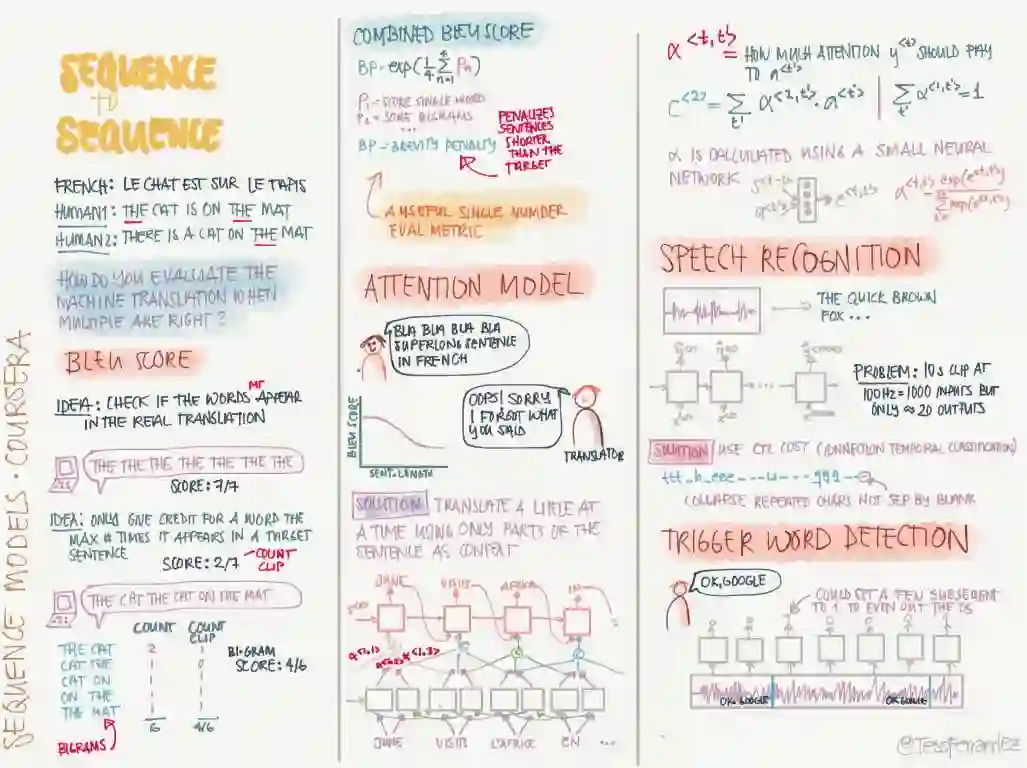 SEQUENCE MODELS · COURSERA
SEQUENCE
TO
SEQUENCE
FRENCH: LE CHAT EST SUR LE TAPIS
HUMAN1: THE CAT IS ON THE MAT
HUMAN2: THERE IS A CAT ON THE MAT
HOW DO YOU EVALUATE THE
MACHINE TRANSLATION WHEN
MULTIPLE ARE RIGHT?
BLEU SCORE
IDEA: CHECK IF THE WORDS MT APPEAR
IN THE REAL TRANSLATION
THE THE THE THE THE THE THE
SCORE: 7/7
IDEA: ONLY GIVE CREDIT FOR A WORD THE
MAX # TIMES IT APPEARS IN A TARGET
SENTENCE
SCORE: 2/7
COUNT
CLIP
THE CAT THE CAT ON THE MAT
COUNT COUNT CLIP
THE CAT 2 1
CAT THE 1 0
CAT ON 1 1
ON THE 1 1
THE MAT 1 1
6 4/6
BIGRAM
SCORE: 4/6
BIGRAMS
COMBINED BLEU SCORE
BP·exp(1/4 Σ Pn)
P1 = SCORE SINGLE WORD
P2 = SCORE BIGRAMS
...
BP = BREVITY PENALTY
PENALIZES
SENTENCES
SHORTER
THAN THE
TARGET
A USEFUL SINGLE NUMBER
EVAL METRIC
ATTENTION MODEL
BLA BLA BLA BLA
SUPERLONG SENTENCE
IN FRENCH
OOPS! SORRY
I FORGOT WHAT
YOU SAID
TRANSLATOR
BLEU SCORE
SENT. LENGTH
SOLUTION TRANSLATE A LITTLE AT
A TIME USING ONLY PARTS OF THE
SENTENCE AS CONTEXT
JANE VISITS AFRICA IN
JANE VISITE L'AFRIQUE EN ...
α<t,t'> = HOW MUCH ATTENTION y<t> SHOULD PAY
TO a<t'>
C<2> = Σ α<2,t'> · a<t'> | Σ α<1,t'> = 1
α IS CALCULATED USING A SMALL NEURAL
NETWORK
SPEECH RECOGNITION
THE QUICK BROWN
FOX ...
PROBLEM: 10s CLIP AT
100Hz = 1000 INPUTS BUT
ONLY ≈ 20 OUTPUTS
SOLUTION USE CTC COST (CONNECTION TEMPORAL CLASSIFICATION)
COLLAPSE REPEATED CHARS NOT SEP BY BLANK
TRIGGER WORD DETECTION
OK, GOOGLE
COULD SET A FEW SUBSEQUENT
TO 1 TO EVEN OUT THE 0s
OK, GOOGLE
OK GOOGLE
@TessFerrandez